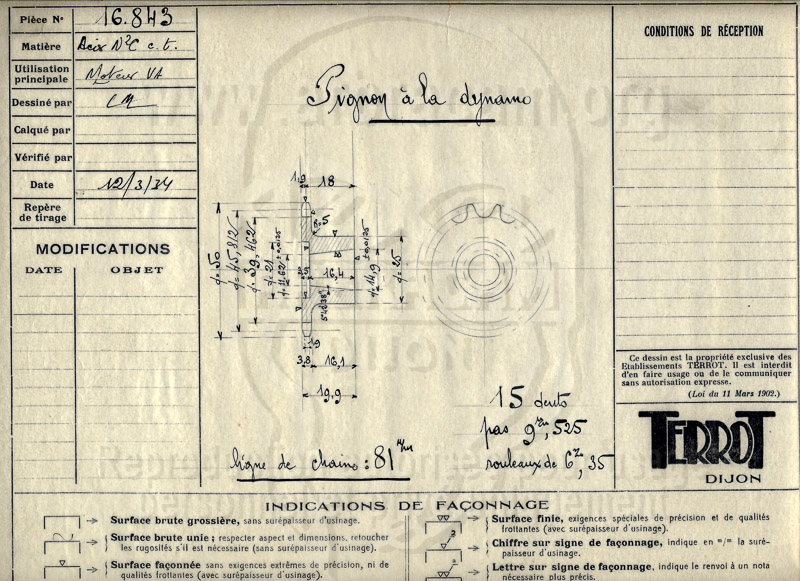 Pièce N° 16.843
Matière Acier N°2C c.t.
Utilisation principale Moteur VA
Dessiné par CM
Calqué par
Vérifié par
Date 12/3/34
Repère de tirage
MODIFICATIONS
DATE OBJET
Pignon à la dynamo
1,9 18
R. 5
ϕ= 50
ϕ= 45,812
ϕ= 39,462
ϕ= 21
3,5 16,4
ϕ= 14,9 ± 0,0125
ϕ= 25
19
3,8 16,1
19,9
15 dents
pas 9 m/m, 525
rouleaux de 6 m/m, 35
ligne de chaine : 81 m/m
CONDITIONS DE RÉCEPTION
Ce dessin est la propriété exclusive des
Etablissements TERROT. Il est interdit
d'en faire usage ou de le communiquer
sans autorisation expresse.
(Loi du 11 Mars 1902.)
TERROT
DIJON
INDICATIONS DE FAÇONNAGE
Surface brute grossière, sans surépaisseur d'usinage.
Surface brute unie; respecter aspect et dimensions, retoucher
les rugosités s'il est nécessaire (sans surépaisseur d'usinage).
Surface façonnée sans exigences extrêmes de précision, ni de
qualités frottantes (avec surépaisseur d'usinage).
Surface finie, exigences spéciales de précision et de qualités
frottantes (avec surépaisseur d'usinage).
Chiffre sur signe de façonnage, indique en m/m la suré-
paisseur d'usinage.
Lettre sur signe de façonnage, indique le renvoi à un nota
nécessaire plus précis.